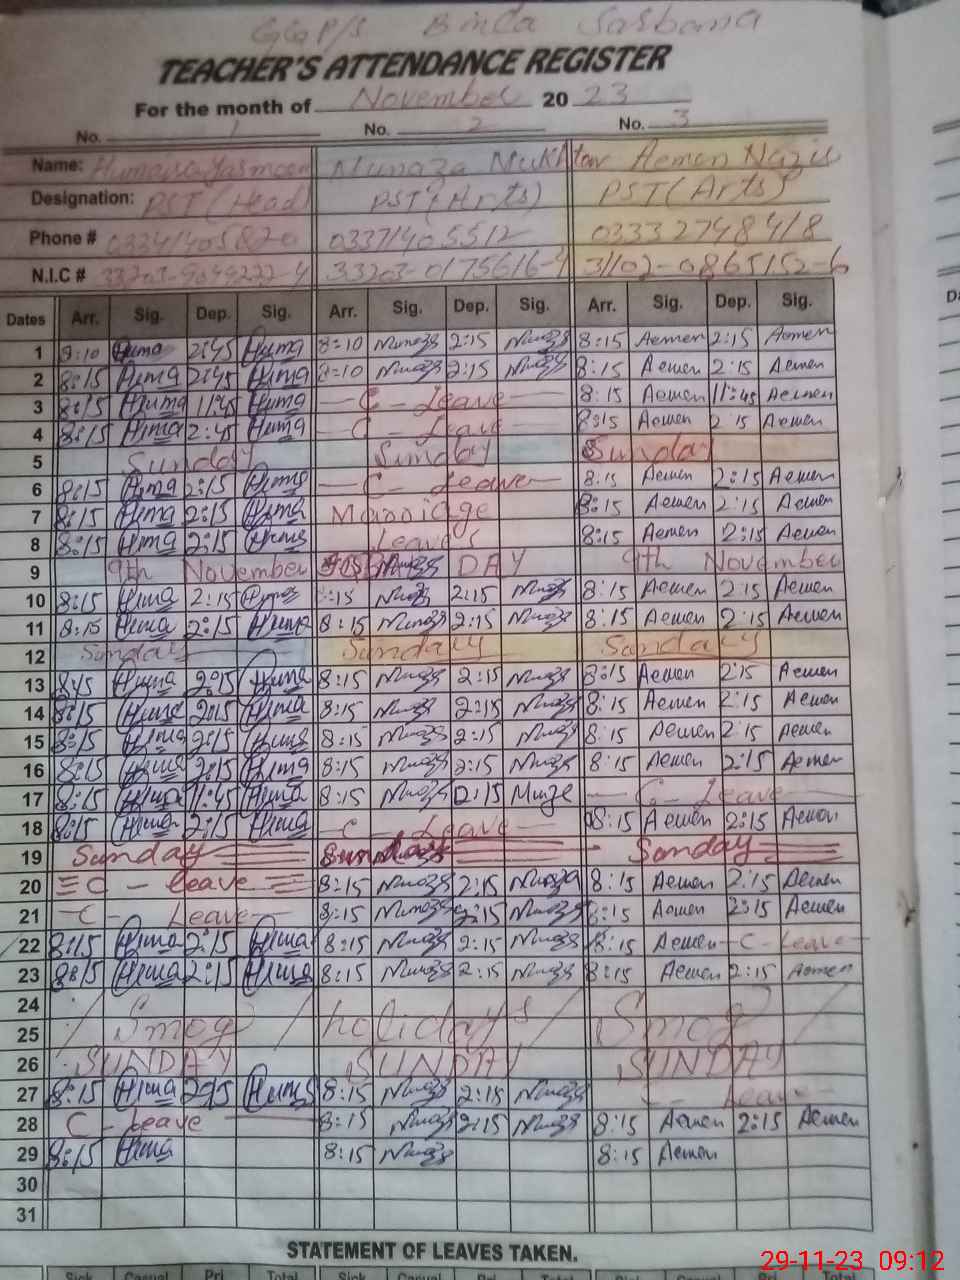 GGP/S Binda Sasbana
TEACHER'S ATTENDANCE REGISTER
For the month of November 2023
No. 1 No. 2 No. 3
Name: Humaira Yasmeen Munaza Mukhtar Aemen Nazir
Designation: PST (Head) PST (Arts) PST (Arts)
Phone # 03371405512 03332748418
N.I.C # 33203-9049222-4 33203-0175616-4 31102-0865152-6
Dates Arr. Sig. Dep. Sig. Arr. Sig. Dep. Sig. Arr. Sig. Dep. Sig.
1 8:10 Huma 2:45 Huma 8:10 Munazza 2:15 Munazza 8:15 Aemen 2:15 Aemen
2 8:15 Huma 2:45 Huma 8:10 Munazza 2:15 Munazza 8:15 Aemen 2:15 Aemen
3 8:15 Huma 11:45 Huma - C - Leave - 8:15 Aemen 11:45 Aemen
4 8:15 Huma 2:45 Huma - C - Leave - 8:15 Aemen 2:15 Aemen
5 Sunday Sunday Sunday
6 8:15 Huma 2:15 Huma - C - Leave - 8:15 Aemen 2:15 Aemen
7 8:15 Huma 2:15 Huma Marriage 8:15 Aemen 2:15 Aemen
8 8:15 Huma 2:15 Huma Leaves 8:15 Aemen 2:15 Aemen
9 9th November DAY 9th November
10 8:15 Huma 2:15 Huma 8:15 Munazza 2:15 Munazza 8:15 Aemen 2:15 Aemen
11 8:15 Huma 2:15 Huma 8:15 Munazza 2:15 Munazza 8:15 Aemen 2:15 Aemen
12 Sunday Sunday Sunday
13 8:15 Huma 2:15 Huma 8:15 Munazza 2:15 Munazza 8:15 Aemen 2:15 Aemen
14 8:15 Huma 2:15 Huma 8:15 Munazza 2:15 Munazza 8:15 Aemen 2:15 Aemen
15 8:15 Huma 2:15 Huma 8:15 Munazza 2:15 Munazza 8:15 Aemen 2:15 Aemen
16 8:15 Huma 2:15 Huma 8:15 Munazza 2:15 Munazza 8:15 Aemen 2:15 Aemen
17 8:15 Huma 11:45 Huma 8:15 Munazza 12:15 - C - Leave -
18 8:15 Huma 2:15 Huma - C - Leave - 8:15 Aemen 2:15 Aemen
19 Sunday Sunday Sunday
20 C - leave 8:15 Munazza 2:15 Munazza 8:15 Aemen 2:15 Aemen
21 - C - Leave - 8:15 Munazza 2:15 Munazza 8:15 Aemen 2:15 Aemen
22 8:15 Huma 2:15 Huma 8:15 Munazza 2:15 Munazza 8:15 Aemen - C - Leave -
23 8:15 Huma 2:15 Huma 8:15 Munazza 2:15 Munazza 8:15 Aemen 2:15 Aemen
24
25 / Smog / holidays / Smog /
26 SUNDAY SUNDAY SUNDAY
27 8:15 Huma 2:15 Huma 8:15 Munazza 2:15 Munazza Leave -
28 C - Leave 8:15 Munazza 2:15 Munazza 8:15 Aemen 2:15 Aemen
29 8:15 Huma 8:15 Munazza 8:15 Aemen
30
31
STATEMENT OF LEAVES TAKEN.
Sick Casual Pri. Total Sick Casual Pri. Total
29-11-23 09:12